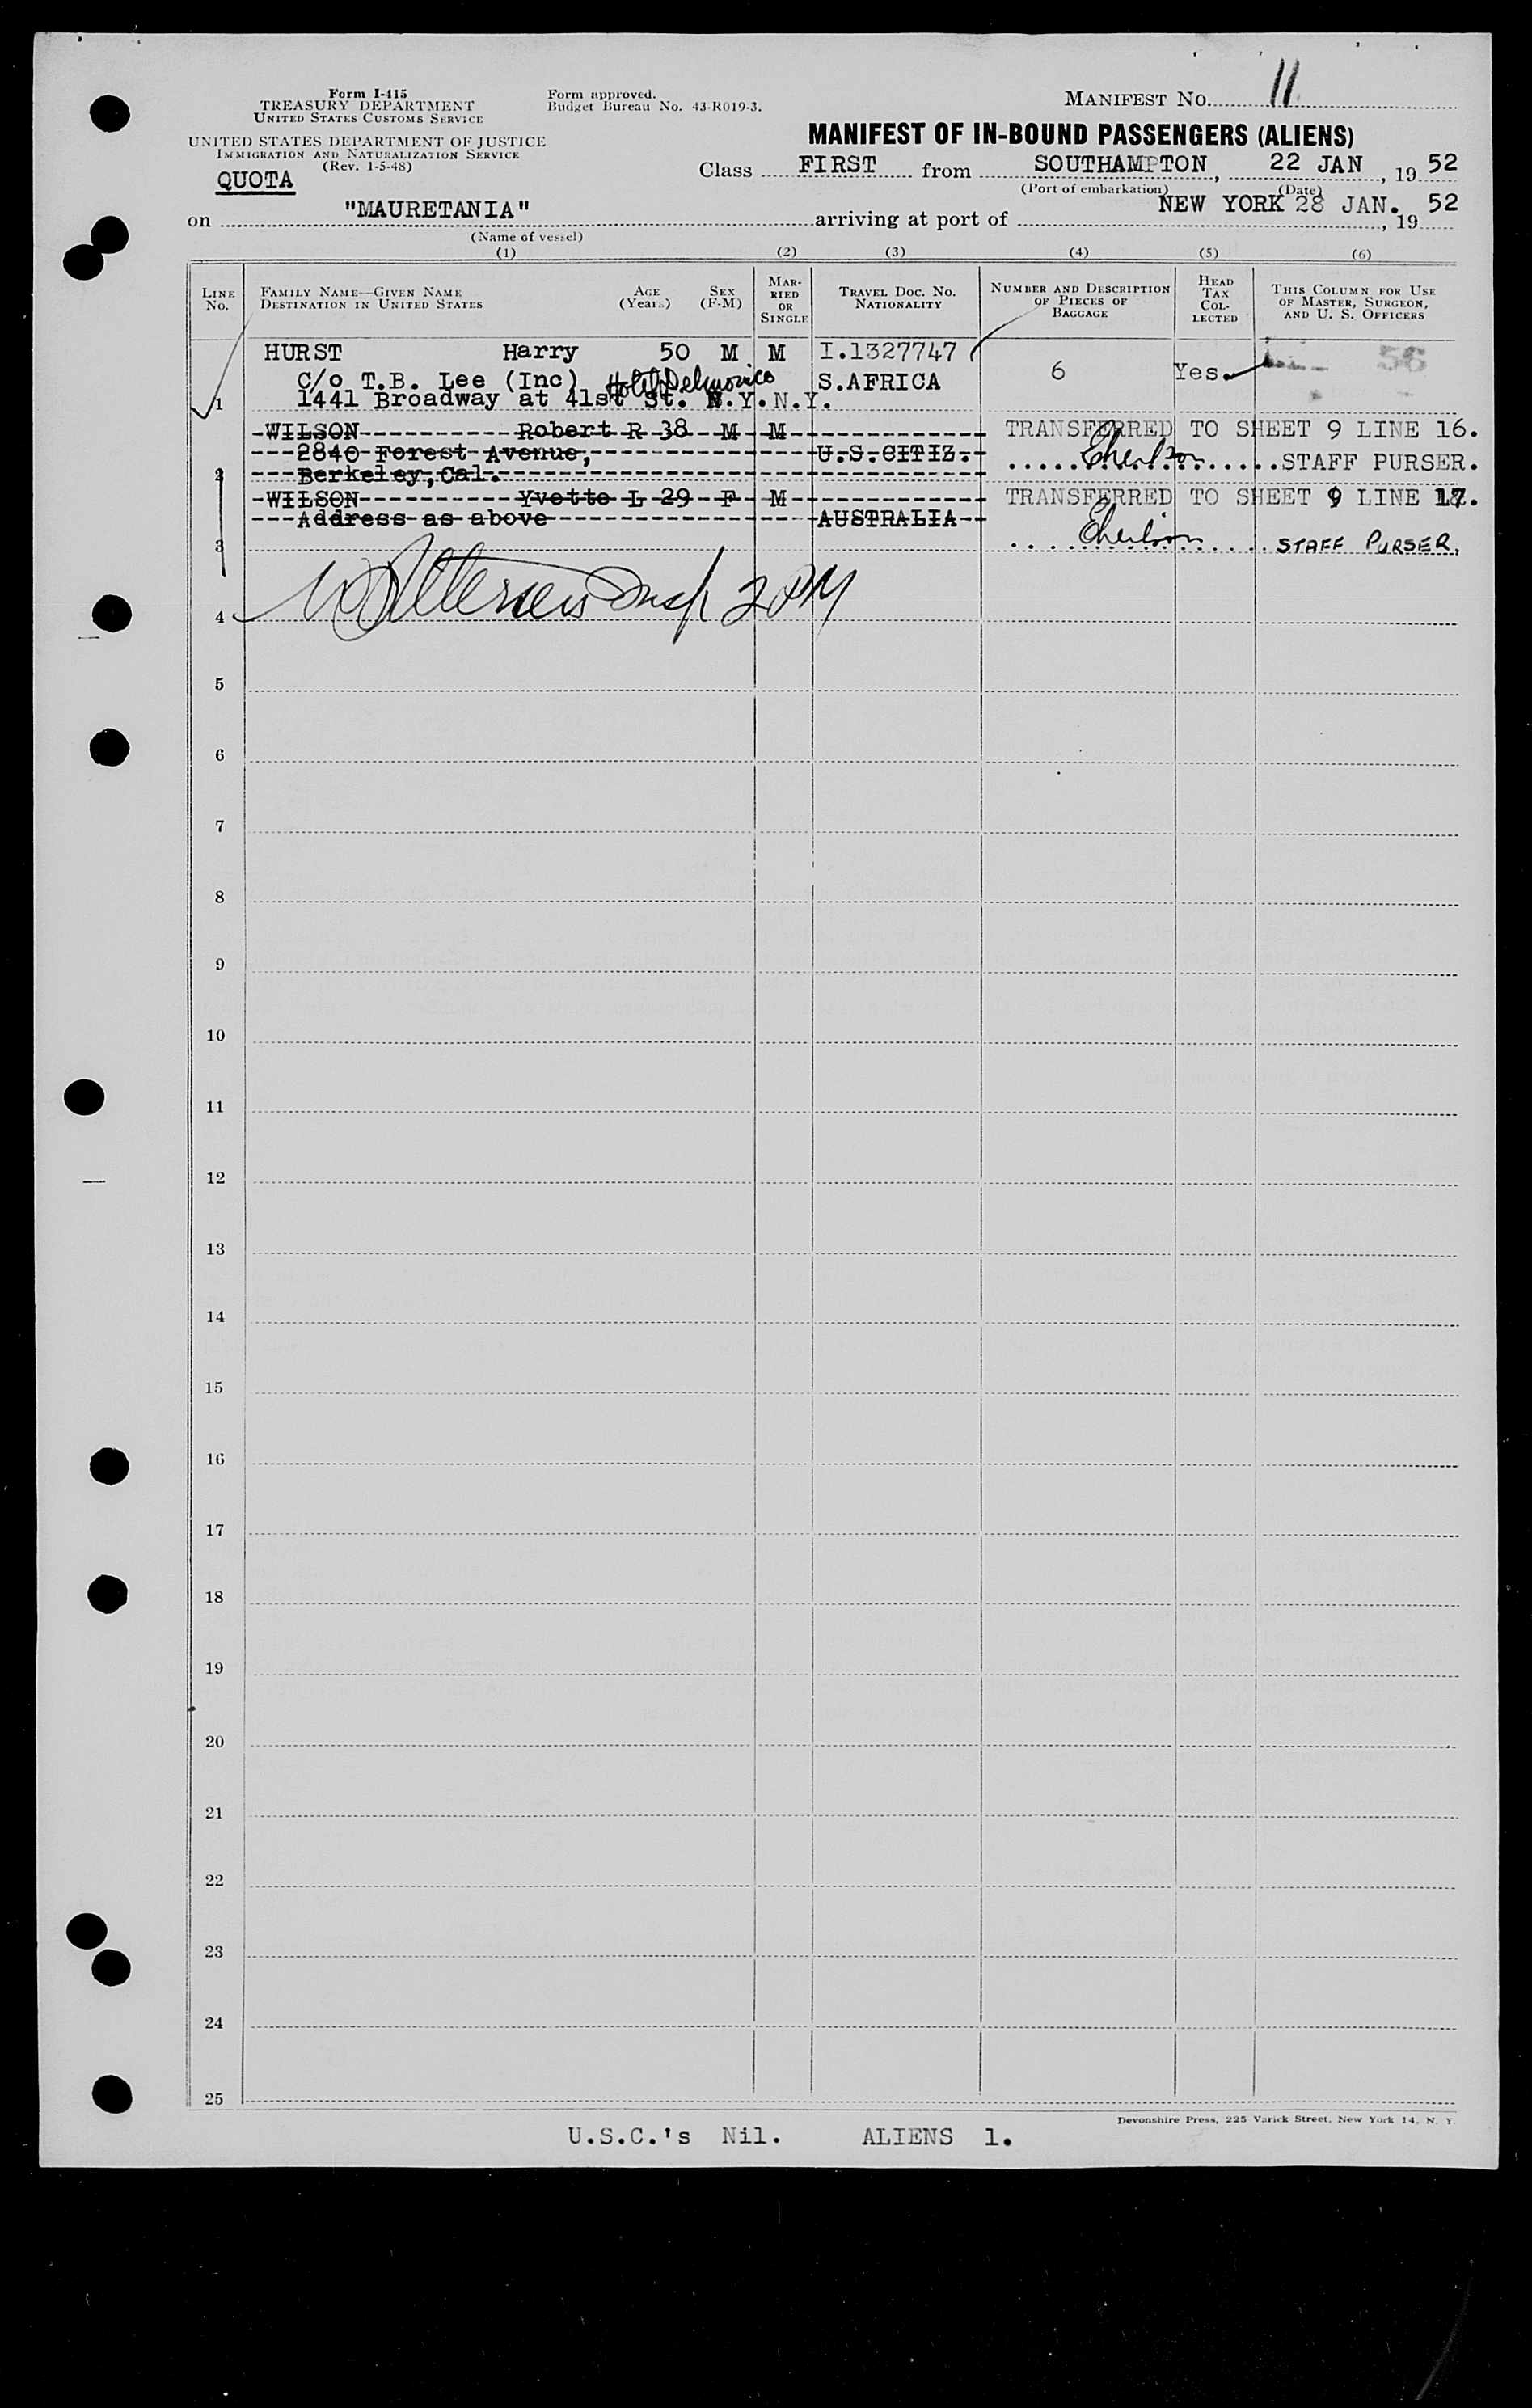 Form I-415
TREASURY DEPARTMENT
UNITED STATES CUSTOMS SERVICE
UNITED STATES DEPARTMENT OF JUSTICE
IMMIGRATION AND NATURALIZATION SERVICE
(Rev. 1-5-48)
Form approved.
Budget Bureau No. 43-R019-3.
MANIFEST NO. 11
MANIFEST OF IN-BOUND PASSENGERS (ALIENS)
QUOTA
Class FIRST from SOUTHAMPTON, 22 JAN, 19 52
(Port of embarkation) (Date)
on "MAURETANIA" arriving at port of NEW YORK 28 JAN., 19 52
(Name of vessel)
(1) (2) (3) (4) (5) (6)
LINE No. FAMILY NAME—GIVEN NAME DESTINATION IN UNITED STATES AGE (Years) SEX (F-M) MARRIED OR SINGLE TRAVEL DOC. NO. NATIONALITY NUMBER AND DESCRIPTION OF PIECES OF BAGGAGE HEAD TAX COLLECTED THIS COLUMN FOR USE OF MASTER, SURGEON, AND U. S. OFFICERS
HURST Harry 50 M M I.1327747 6 Yes. 56
C/o T.B. Lee (Inc) Hotel Delmonico S.AFRICA
1 1441 Broadway at 41st St. N.Y.N.Y.
WILSON Robert R 38 M M TRANSFERRED TO SHEET 9 LINE 16.
2840 Forest Avenue, U.S.CITIZ. STAFF PURSER.
2 Berkeley, Cal.
WILSON Yvette L 29 F M TRANSFERRED TO SHEET 9 LINE 17.
Address as above AUSTRALIA
3 STAFF PURSER.
4 Insp 2 PM
5
6
7
8
9
10
11
12
13
14
15
16
17
18
19
20
21
22
23
24
25
Devonshire Press, 225 Varick Street, New York 14, N. Y.
U.S.C.'s Nil. ALIENS 1.